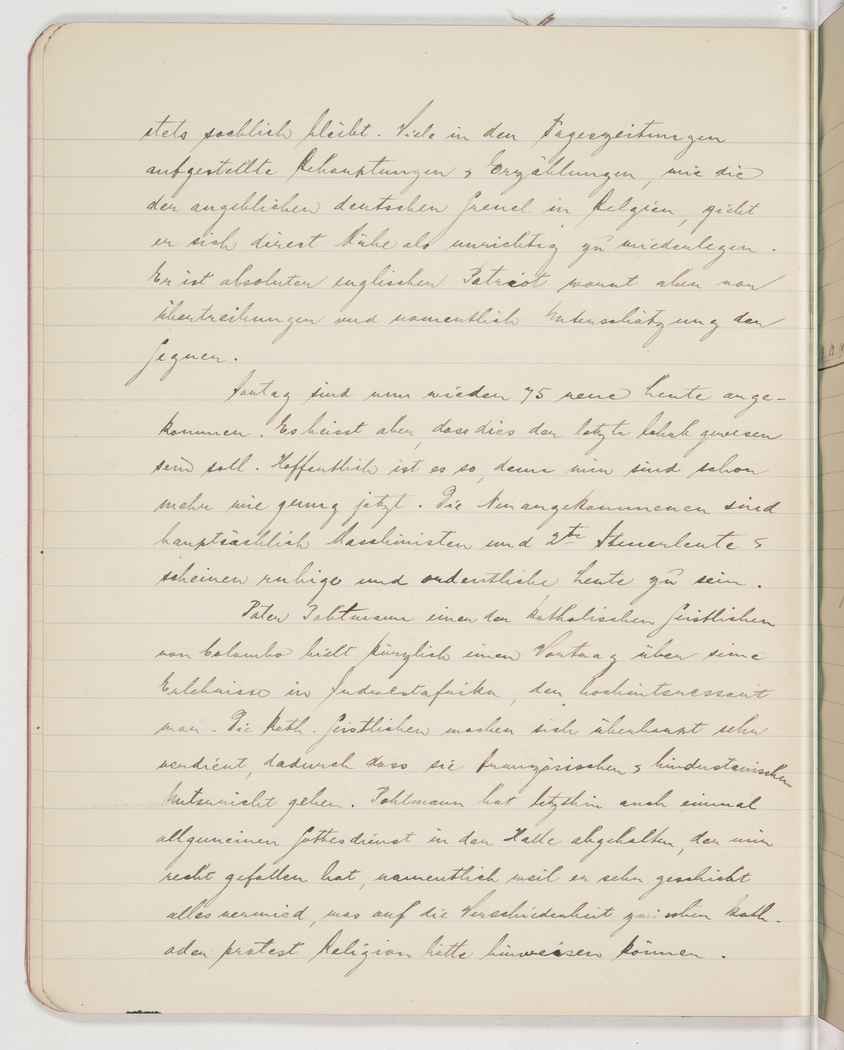 stets sachlich bleibt. Viele in den Tageszeitungen
aufgestellte Behauptungen & Erzählungen, wie die
der angeblichen deutschen Greuel in Belgien, giebt
er sich direct Mühe als unrichtig zu wiederlegen.
Er ist absoluter englischer Patriot warnt aber vor
übertreibungen und namentlich Unterschätzung der
Gegner.
sind nun wieder 75 neue Leute ange-
kommen. Es heisst aber, dass dies der letzte Schub gewesen
sein soll. Hoffentlich ist es so, denn wir sind schon
mehr wie genug jetzt. Die Neuangekommenen sind
hauptsächlich Maschinisten und 2te Steuerleute &
scheinen ruhige und ordentliche Leute zu sein.
Pater Pohtmann einer der katholischen Geistlichen
von Colombo hielt kürzlich einen Vortrag über seine
Erlebnisse in Südwestafrika, der hochinteressant
war. Die Kath. Geistlichen machen sich überhaupt sehr
verdient, dadurch dass sie französischen & hindustanischen
Unterricht geben. Pohtmann hat letzthin auch einmal
allgemeinen Gottesdienst in der Halle abgehalten, der mir
recht gefallen hat, namentlich weil er sehr geschickt
alles vermied, was auf die Verschiedenheit zwischen kath.
oder protest Religion hätte hinweisen können.